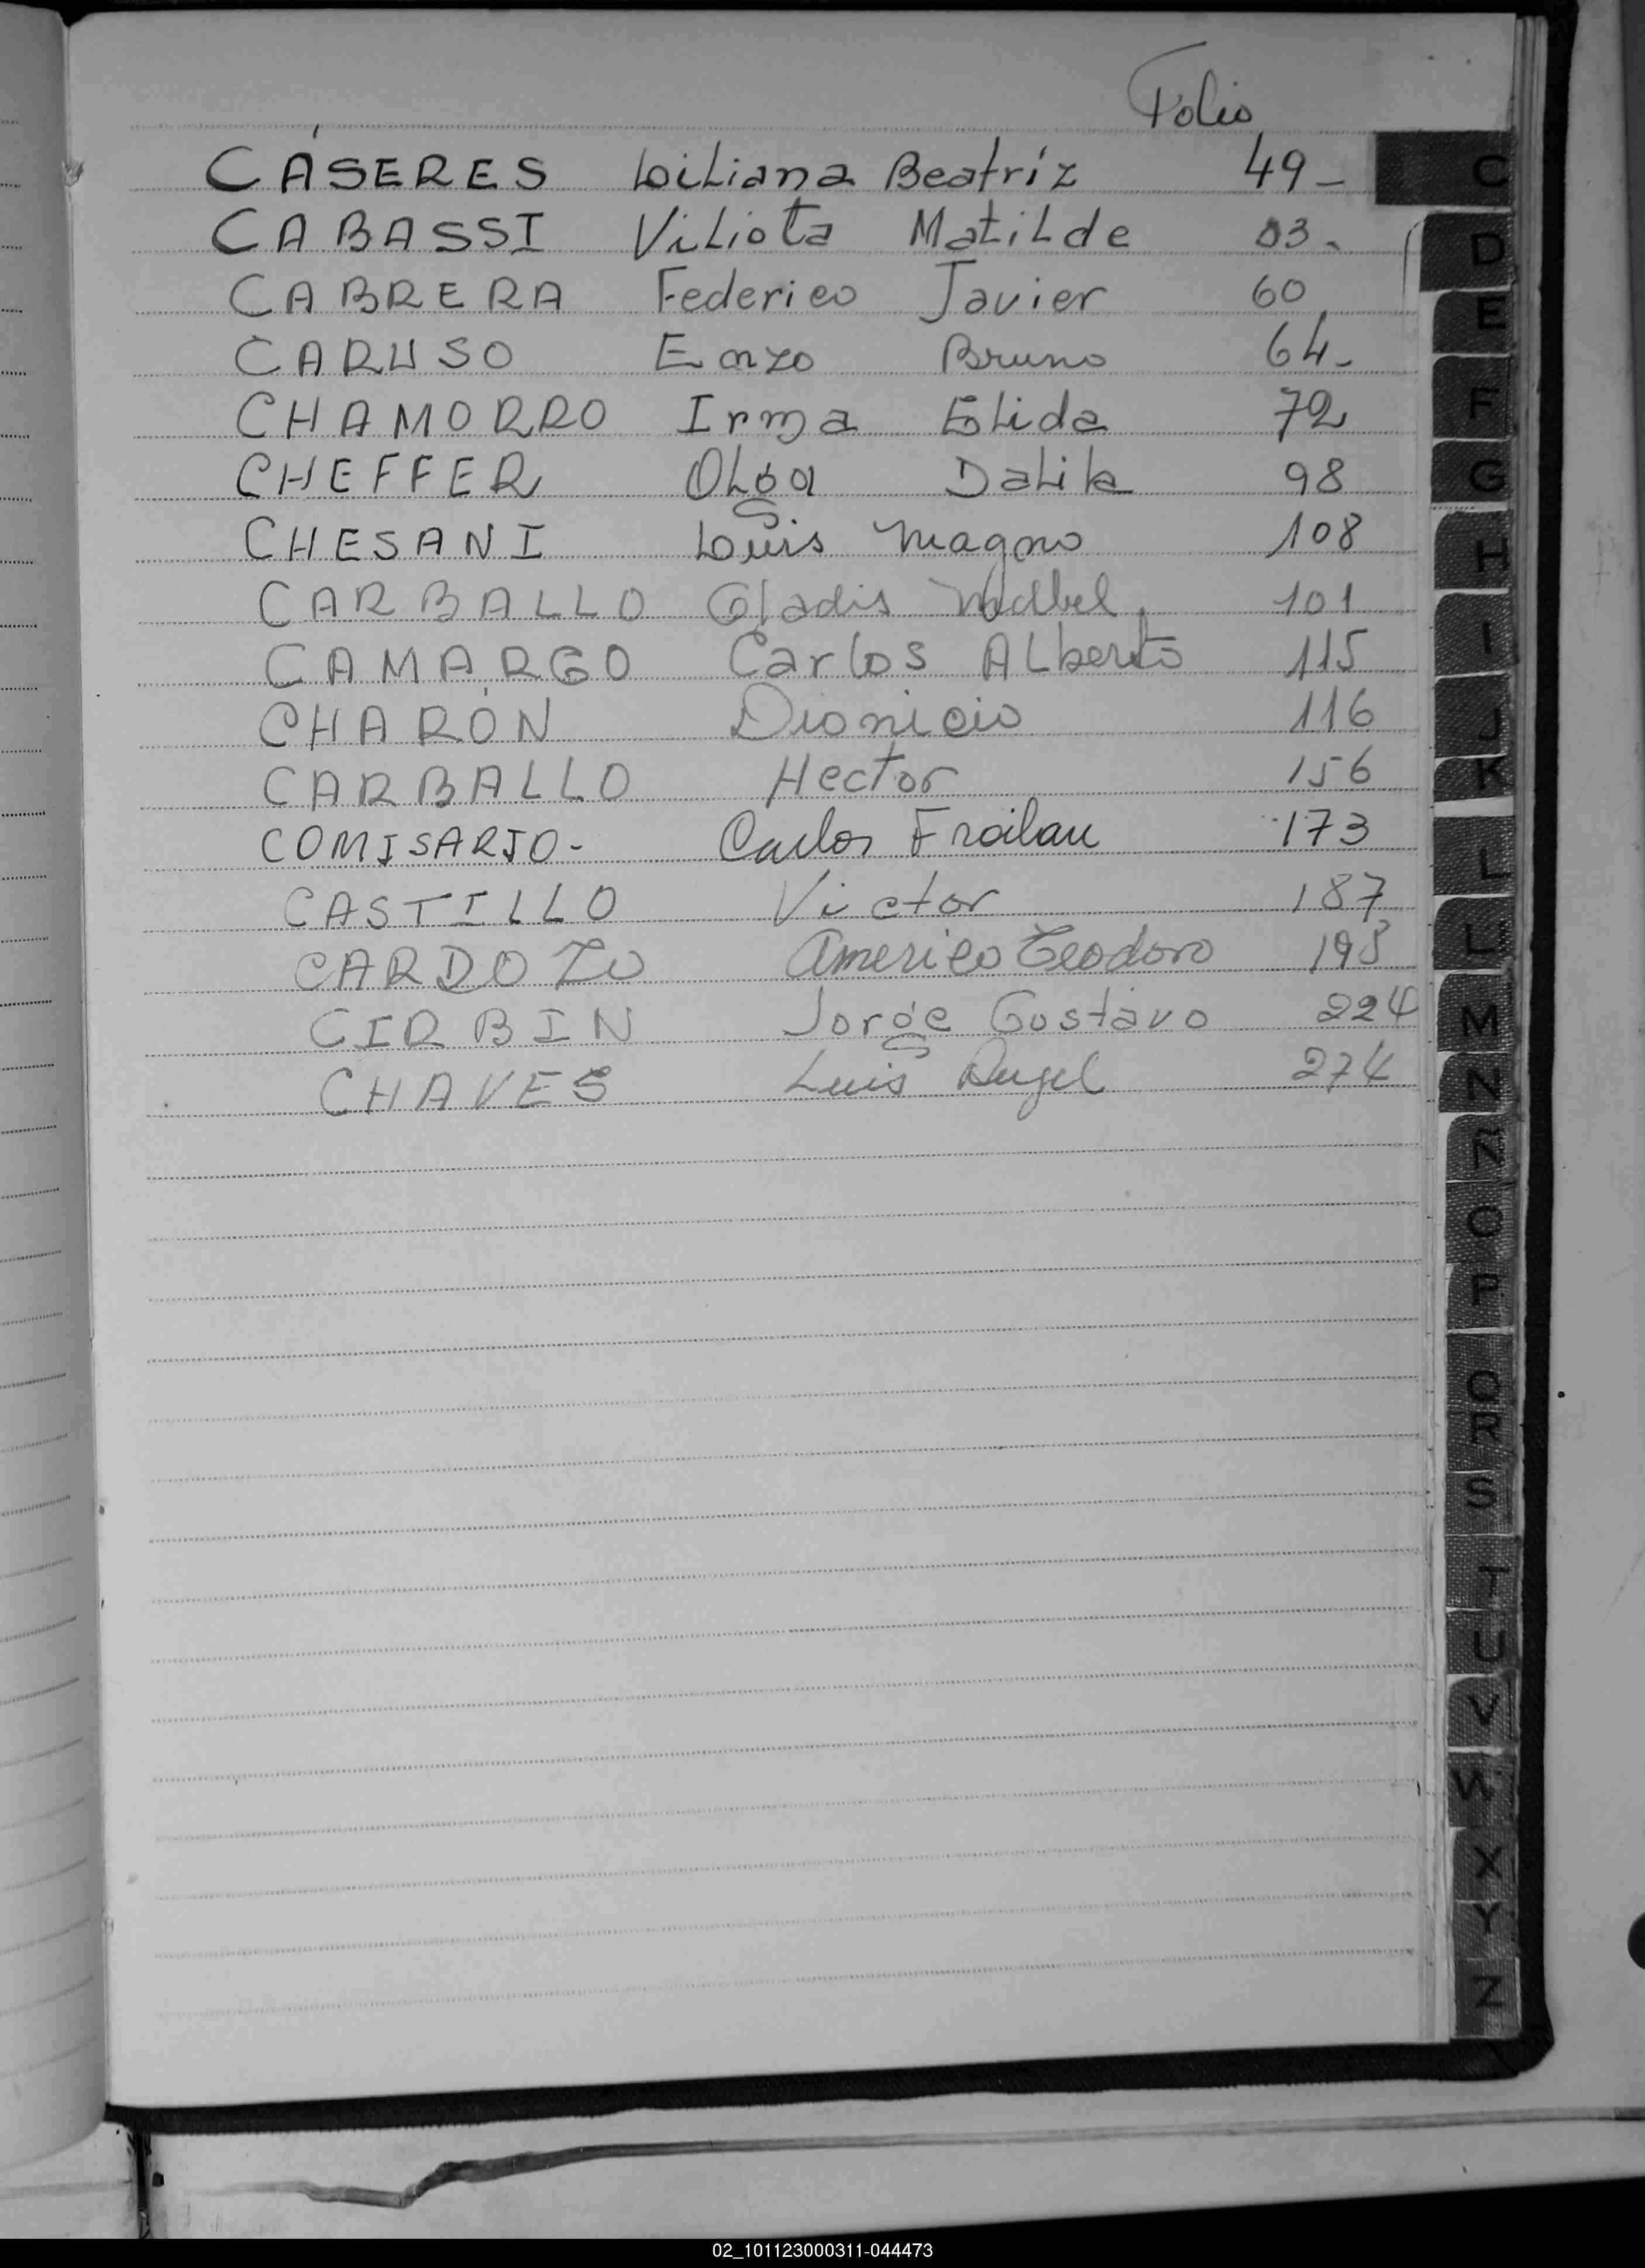 Folio
CÁSERES Liliana Beatriz 49-
CABASSI Viliota Matilde 03.
CABRERA Federico Javier 60
CARUSO Enzo Bruno 64-
CHAMORRO Irma Elida 72
CHEFFER Olga Dalila 98
CHESANI Luis Magno 108
CARBALLO Gladis Mabel 101
CAMARGO Carlos Alberto 115
CHARON Dionicio 116
CARBALLO Hector 156
COMISARIO- Carlos Froilan 173
CASTILLO Victor 187
CARDOZO Americo Teodoro 193
CIRBIN Jorge Gustavo 224
CHAVES Luis Angel 274
C
D
E
F
G
H
I
J
K
L
LL
M
N
Ñ
O
P
Q
R
S
T
U
V
W
X
Y
Z
02_101123000311-044473